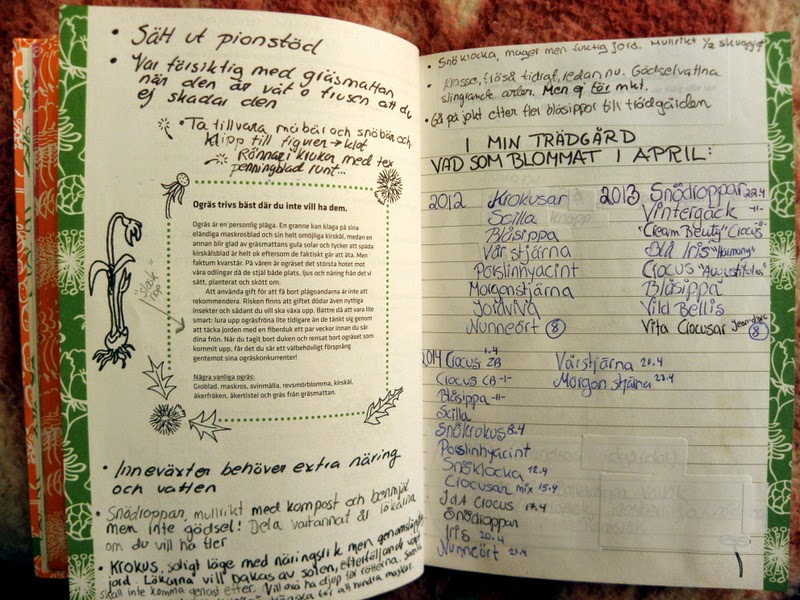 • Sätt ut pionstöd
• Var försiktig med gräsmattan
när den är våt o frusen att du
ej skadar den
• Ta tillvara måbär och snöbär och
klipp till figurer → klot
Rönnar i kruka med tex
penningblad runt...
Ogräs trivs bäst där du inte vill ha dem.
Ogräs är en personlig plåga. En granne kan klaga på sina
eländiga maskrosblad och sin helt omöjliga kirskål, medan en
annan blir glad av gräsmattans gula solar och tycker att späda
kirskålsblad är helt ok eftersom de faktiskt går att äta. Men
faktum kvarstår. På våren är ogräset det största hotet mot
våra odlingar då de stjäl både plats, ljus och näring från det vi
sått, planterat och skött om.
Att använda gift för att få bort plågoandarna är inte att
rekommendera. Risken finns att giftet dödar även nyttiga
insekter och sådant du vill ska växa upp. Bättre då att vara lite
smart: lura upp ogräsfröna lite tidigare än de tänkt sig genom
att täcka jorden med en fiberduk ett par veckor innan du sår
dina frön. När du tagit bort duken och rensat bort ogräset som
kommit upp, får det du sår ett välbehövligt försprång
gentemot sina ogräskonkurrenter!
Några vanliga ogräs:
Groblad, maskros, svinmålla, revsmörblomma, kirskål,
åkerfräken, åkertistel och gräs från gräsmattan.
• Inneväxter behöver extra näring
och vatten
• Snödroppar, mullrikt med kompost och benmjöl
men inte gödsel! Dela vartannat år lökarna
om du vill ha fler
• Krokus, soligt läge med näringsrik men genomsläpplig
jord. Lökarna vill bakas av solen, efterföljande
skall inte komma genast efter. Vill ha djup för rötterna.
för att hindra
• Snöklocka, mager men fuktig jord. Mullrikt 1/2 skuggigt
• Krasse, fröså tidigt, redan nu. Gödselvattna
slingrande arter. Men ej för mkt.
• Gå på jakt efter fler blåsippor till trädgården
I MIN TRÄDGÅRD
VAD SOM BLOMMAT I APRIL:
2012 Krokusar
Scilla
Blåsippa
Vårstjärna
Porslinhyacint
Morgonstjärna
Jordviva
Nunneört 8
2013 Snödroppar 22.4
Vintergäck -11-
"Cream Beuty" Crocus -11-
Blå Iris "Harmony"
Crocus "Augustifolius"
Blåsippa
Vild Bellis
Vita Crocusar Jean-d'arc 8
2014 Crocus ZB 1.4
Crocus CB -1-
Blåsippa -11-
Scilla
Snökrokus 8.4
Porslinhyacint
Snöklocka 12.4
Crocusar mix 15.4
Ida Crocus 17.4
Snödroppar
Iris 20.4
Nunneört 21.4
Vårstjärna 20.4
Morgonstjärna 23.4